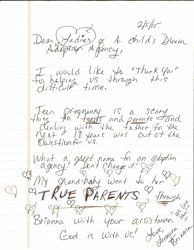 2/5/15
Dear Ladies of A child's Dream
Adoption Agency,
I would like to "Thank you"
for helping us through this
difficult time.
Teen pregnancy is a scary
thing to teens and parents and
dealing with the father for the
next 18 years was out of the
question for us.
What a great name for an adoption
agency! Don't change it!
My grandbaby went to her
TRUE PARENTS through
Brianna with your assistance.
God is with us!
Love